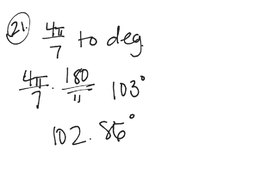 21. 4π/7 to deg
4π/7 · 180/π 103°
102.86°